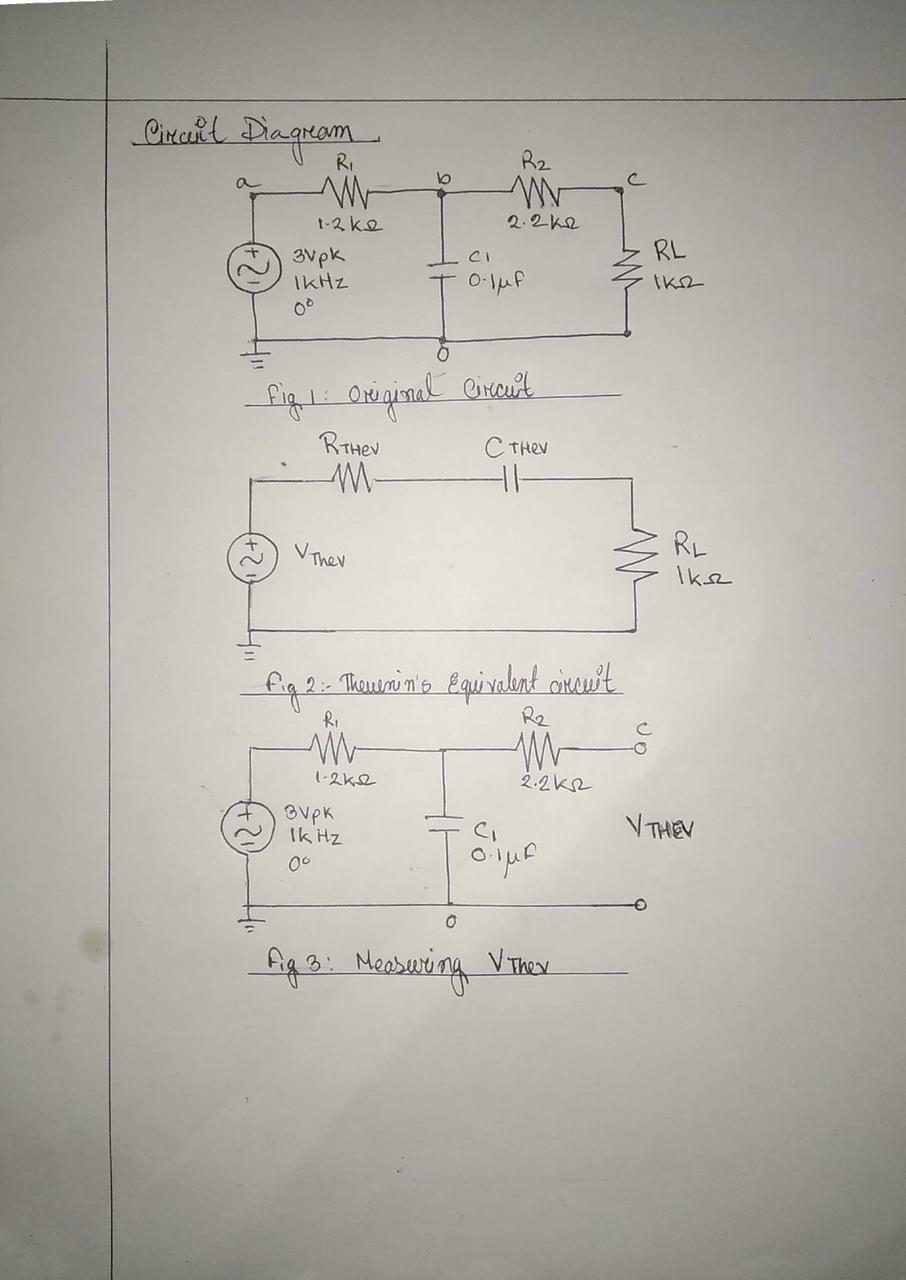 Circuit Diagram.
R1
R2
a
b
c
1.2kΩ
2.2kΩ
+
3Vpk
1kHz
0°
-
C1
0.1μF
RL
1kΩ
0
Fig 1: Original Circuit
RTHEV
CTHEV
+
VThev
-
RL
1kΩ
Fig 2:- Thevenin's Equivalent circuit
R1
R2
C
1.2kΩ
2.2kΩ
+
3Vpk
1kHz
0°
-
C1
0.1μF
VTHEV
0
Fig 3: Measuring VThev